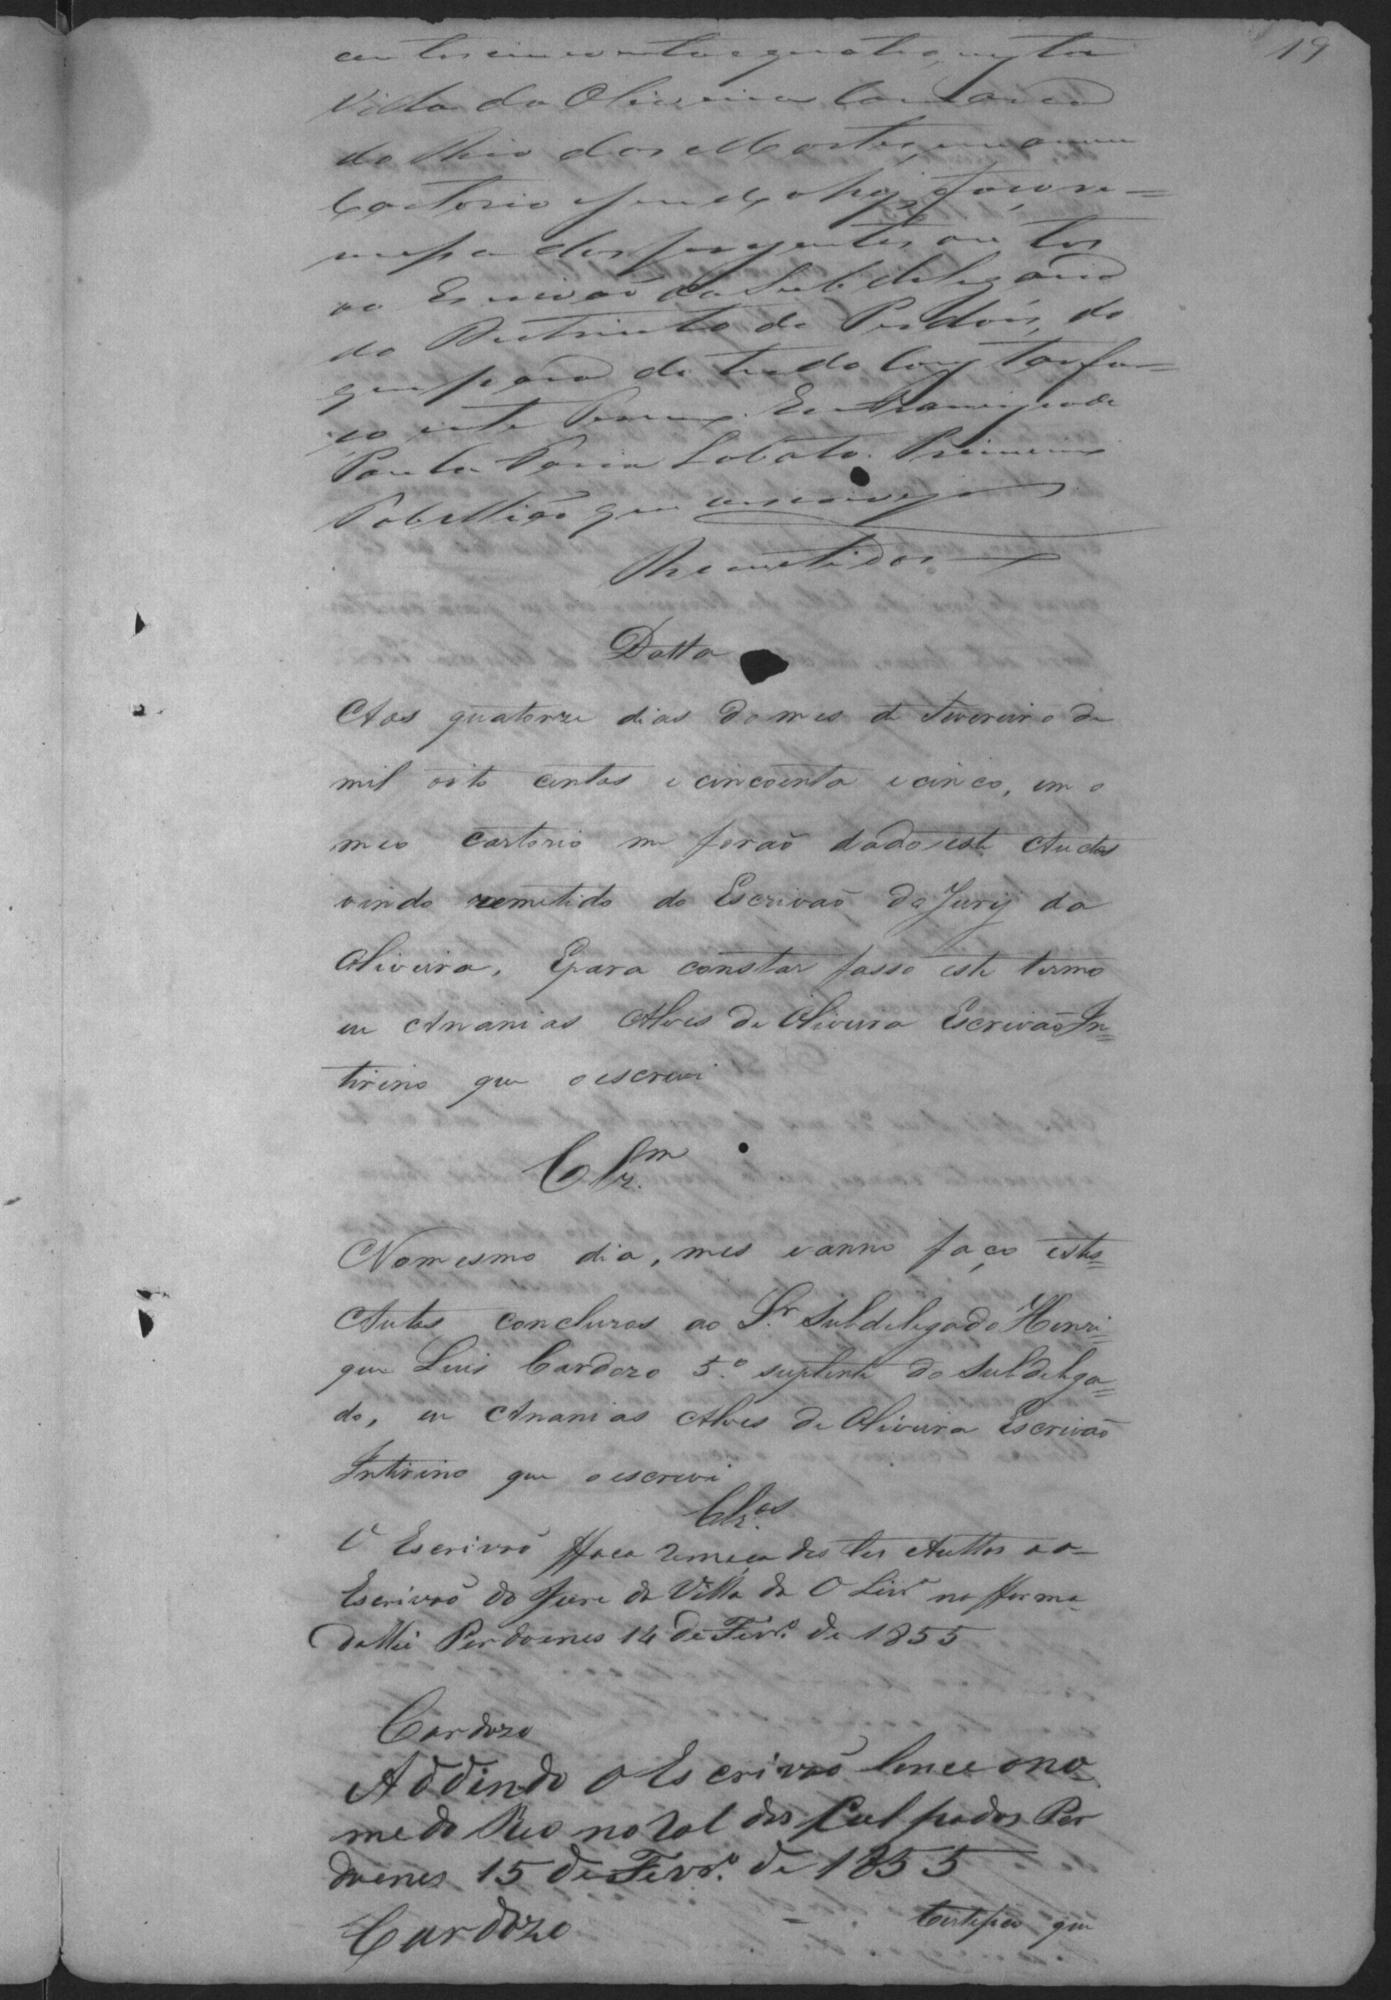 19
centos cincoenta e quatro, nesta
Villa da Oliveira Comarca
do Rio das Mortes, em o meu
Cartorio sendo ahi, faço re=
messa dos prezentes autos
ao Escrivão da Subdelegacia
do Destricto de Perdões, do
que para de tudo constar fa=
ço este Termo. Eu Francisco de
Paula Faria Lobato. Primeiro
Tabellião que escrevi
Remetidos
Datta
Aos quatorze dias do mes de Fevereiro de
mil oito centos e cincoenta e cinco, em o
meo Cartorio me forão dado este Auctos
vindo remetido do Escrivão do Jury da
Oliveira, E para constar fasso este termo
eu Ananias Alves de Oliveira Escrivão In=
tirino que o escrevi
Clz.m
No mesmo dia, mes e anno faço estes=
Autos concluzos ao Sr. Subdelegado Henri=
que Luis Cardozo 5.º suplente do Subdelga=
do, eu Ananias Alves de Oliveira Escrivão
Intirino que o escrevi
Clz.os
O Escrivão ffaca Remeça destes Auttos ao
Escrivão do Jure da Villa da O Livr.ª na fforma
da Llei Perdoenes 14 de Fevr.º de 1855
Cardozo
Addindo O Escrivão Lance o no
me do Reo no Rol dos Culpados Per
doenes 15 de Fevr.º de 1855
Cardozo
Certefico que